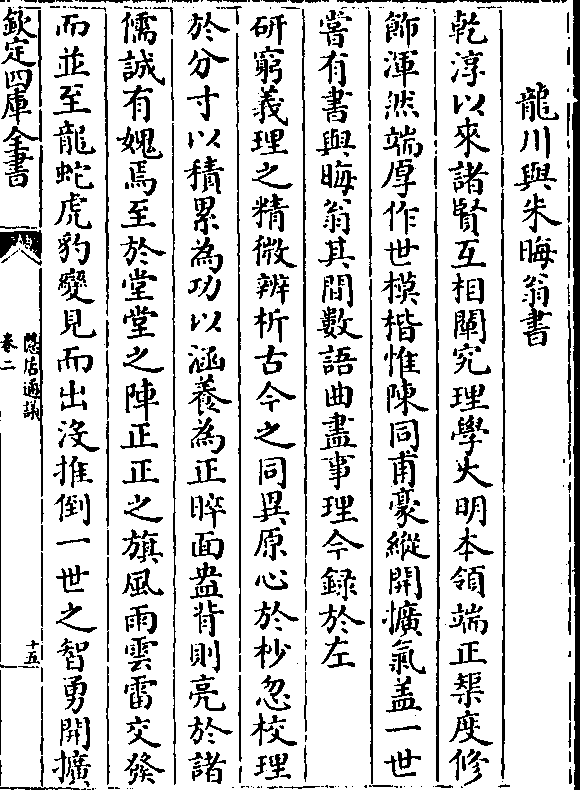 龍川與朱晦翁書
乾淳以來諸賢互相闡究理學大明本領端正榘度修
飾渾然端厚作世模楷惟陳同甫豪縱開擴氣盖一世
嘗有書與晦翁其間數語曲盡事理今録於左
研窮義理之精微辨析古今之同異原心於杪忽校理
於分寸以積累為功以涵養為正睟面盎背則亮於諸
儒誠有媿焉至於堂堂之陣正正之旗風雨雲雷交發
而並至龍蛇虎豹變見而出没推倒一世之智勇開擴
欽定四庫全書
隱居通議
卷二
十五